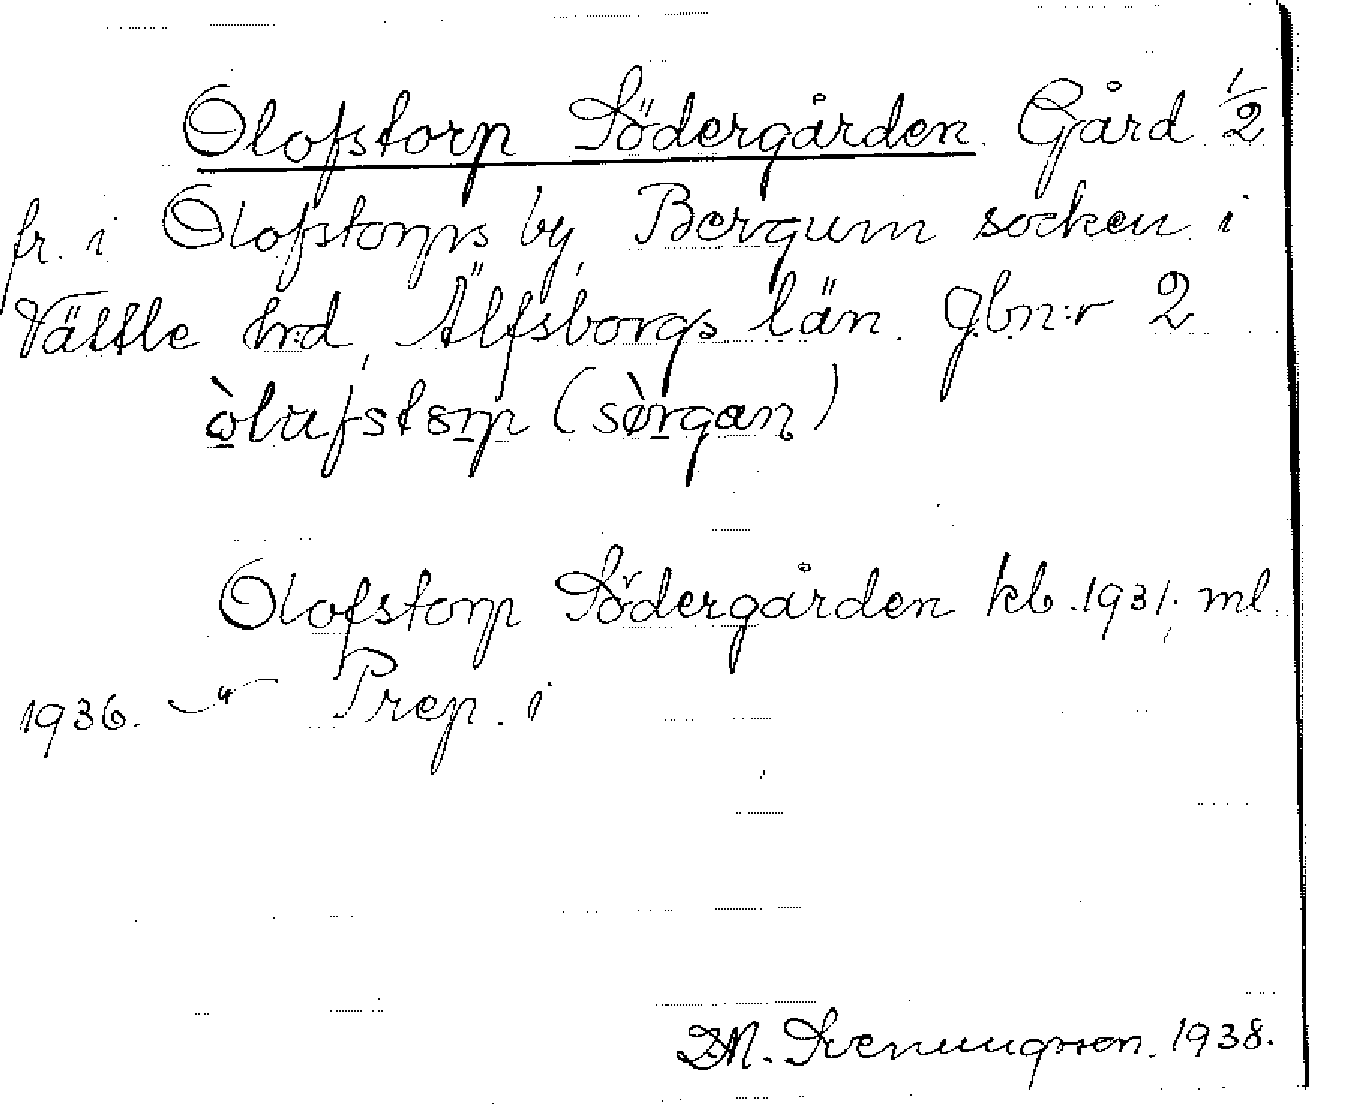 Olofstorp Södergården Gård 1/2
fr. i Olofstorps by, Bergum socken i
Vättle hrd, Älfsborgs län. Jbn:r 2
òlafstorp (sørgan)
Olofstorp Södergården kb. 1931, ml.
1936. —"— Prep. i
D.M. Svenungsson. 1938.